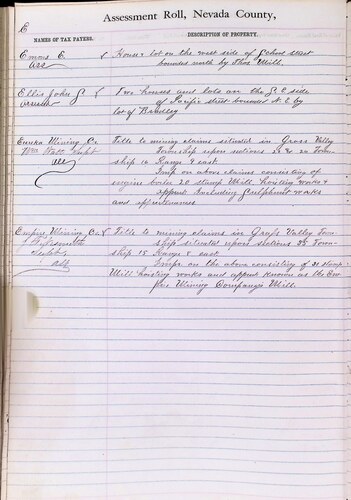 Assessment Roll, Nevada County,
E
NAMES OF TAX PAYERS.
DESCRIPTION OF PROPERTY.
Emms E. House & lot on the west side of School street
bounded north by Thos Mill.
Ellis John Two houses and lots on the S. E side
of Pacific street bounded N. E by
lot of Brackley
Eureka Mining Co Title to mining claims situated in Grass Valley
Wm Watt Supt Township upon sections 23 & 26 Town
ship 16 Range 8 east
Imp on above claims consisting of
engine boiler 20 stamp Mill hoisting works &
appurt including Sulphuret works
and appurtenances
Empire Mining Co Title to mining claims in Grass Valley Town
ship situated upon sections 35 Town
ship 15 Range 8 east.
Imps on the above consisting of 20 stamp
Mill hoisting works and appurt known as the Em
pire Mining Company's Mill.